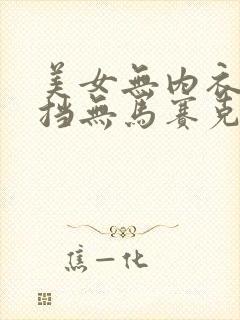 美女無內衣
挡無馬賽克
焦一化